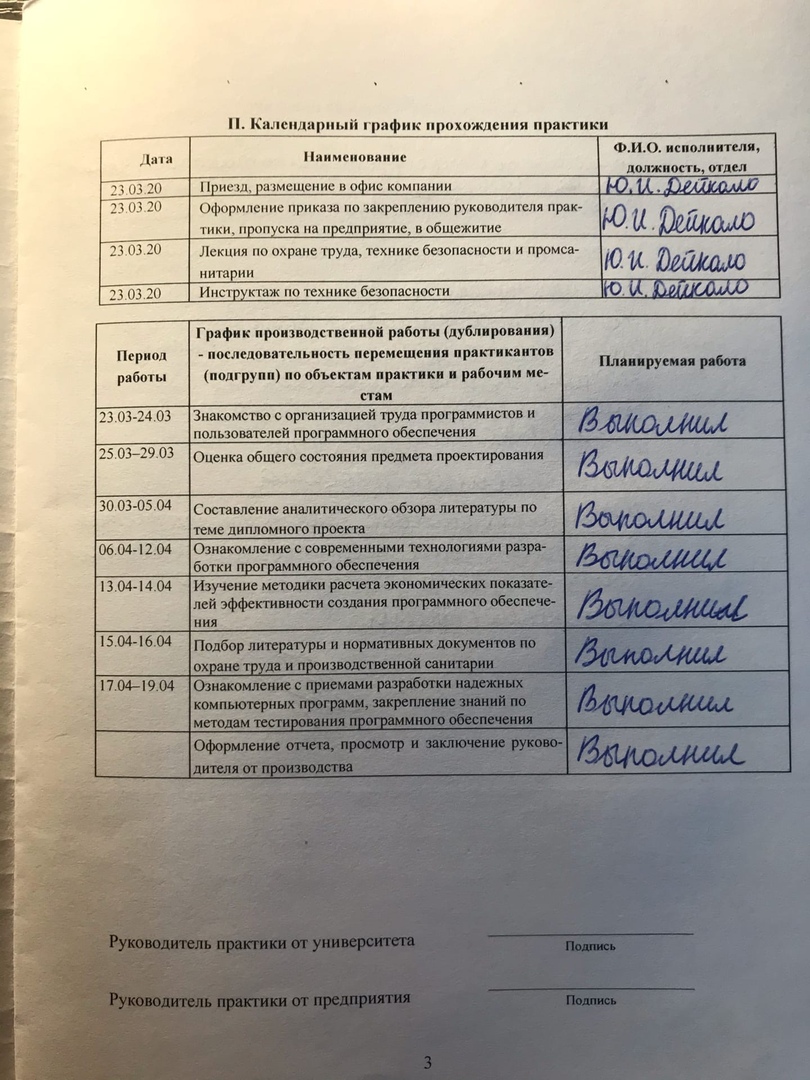 II. Календарный график прохождения практики
Дата
Наименование
Ф.И.О. исполнителя,
должность, отдел
23.03.20
Приезд, размещение в офис компании
Ю.И. Дейкало
23.03.20
Оформление приказа по закреплению руководителя прак-
тики, пропуска на предприятие, в общежитие
Ю.И. Дейкало
23.03.20
Лекция по охране труда, технике безопасности и промса-
нитарии
Ю.И. Дейкало
23.03.20
Инструктаж по технике безопасности
Ю.И. Дейкало
Период
работы
График производственной работы (дублирования)
- последовательность перемещения практикантов
(подгрупп) по объектам практики и рабочим ме-
стам
Планируемая работа
23.03-24.03
Знакомство с организацией труда программистов и
пользователей программного обеспечения
Выполнил
25.03–29.03
Оценка общего состояния предмета проектирования
Выполнил
30.03-05.04
Составление аналитического обзора литературы по
теме дипломного проекта
Выполнил
06.04-12.04
Ознакомление с современными технологиями разра-
ботки программного обеспечения
Выполнил
13.04-14.04
Изучение методики расчета экономических показате-
лей эффективности создания программного обеспече-
ния
Выполнил
15.04-16.04
Подбор литературы и нормативных документов по
охране труда и производственной санитарии
Выполнил
17.04–19.04
Ознакомление с приемами разработки надежных
компьютерных программ, закрепление знаний по
методам тестирования программного обеспечения
Выполнил
Оформление отчета, просмотр и заключение руково-
дителя от производства
Выполнил
Руководитель практики от университета
Подпись
Руководитель практики от предприятия
Подпись
3